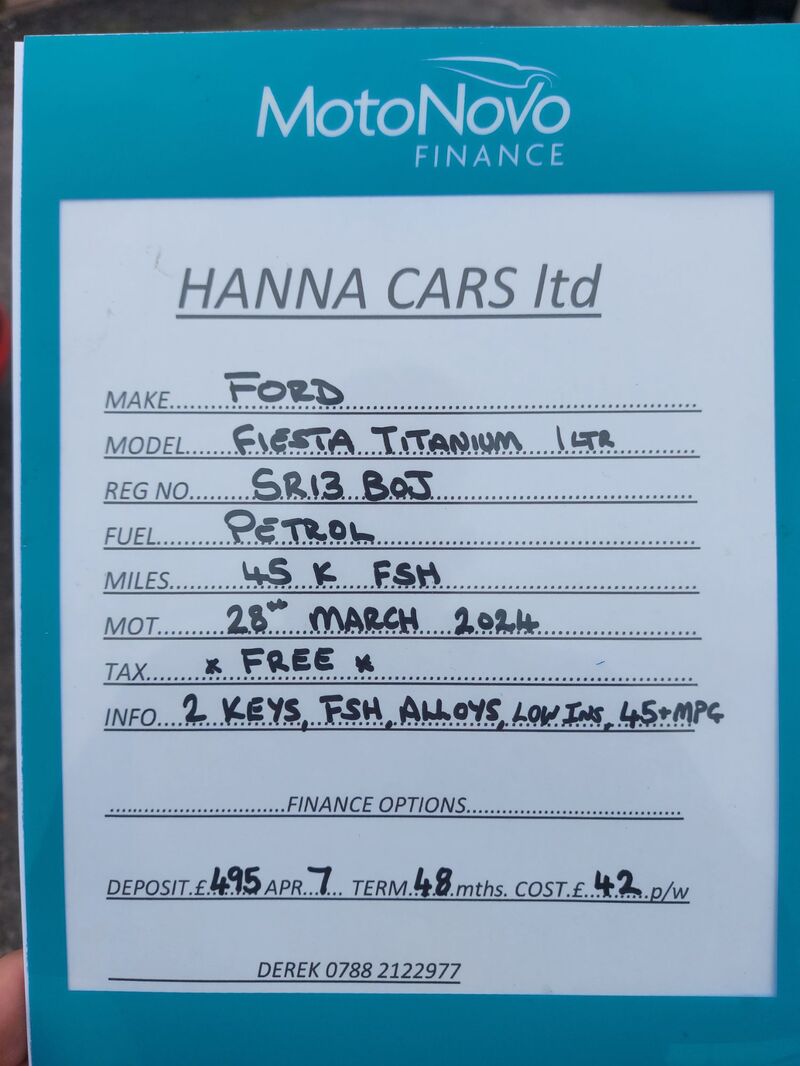 MotoNovo
FINANCE
HANNA CARS ltd
MAKE......FORD
MODEL......FIESTA TITANIUM 1 LTR
REG NO......SR13 BOJ
FUEL......PETROL
MILES......45 K FSH
MOT......28TH MARCH 2024
TAX......* FREE *
INFO...2 KEYS, FSH, ALLOYS, LOW INS, 45+MPG
..............................FINANCE OPTIONS..............................
DEPOSIT.£..495 APR...7... TERM..48.mths. COST.£..42..p/w
DEREK 0788 2122977